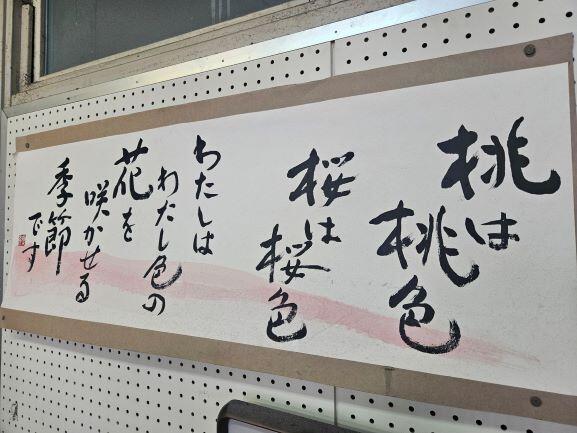 桃は
桃色
桜は
桜色
わたしは
わたし色の
花を
咲かせる
季節
です